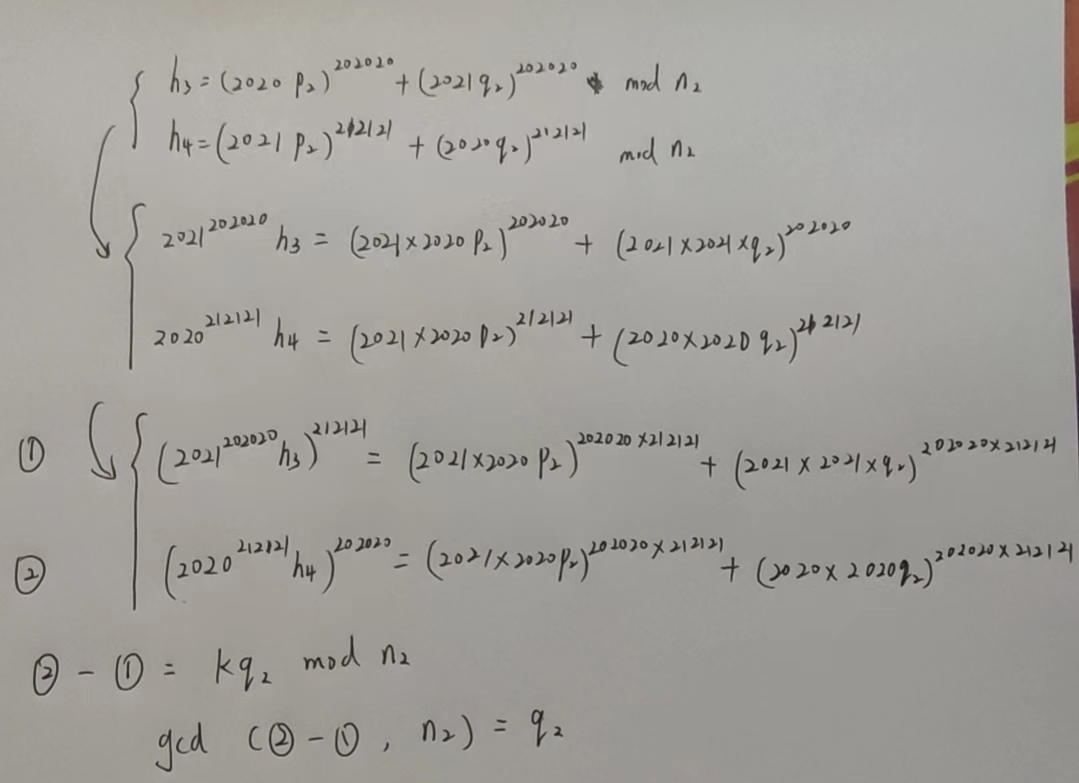 h₃ = (2020 p₂)^202020 + (2021 q₂)^202020 mod n₂
h₄ = (2021 p₂)^212121 + (2020 q₂)^212121 mod n₂
2021^202020 h₃ = (2021×2020 p₂)^202020 + (2021×2021×q₂)^202020
2020^212121 h₄ = (2021×2020 p₂)^212121 + (2020×2020 q₂)^212121
① (2021^202020 h₃)^212121 = (2021×2020 p₂)^202020×212121 + (2021×2021×q₂)^202020×212121
② (2020^212121 h₄)^202020 = (2021×2020p₂)^202020×212121 + (2020×2020q₂)^202020×212121
② - ① = kq₂ mod n₂
gcd (② - ①, n₂) = q₂